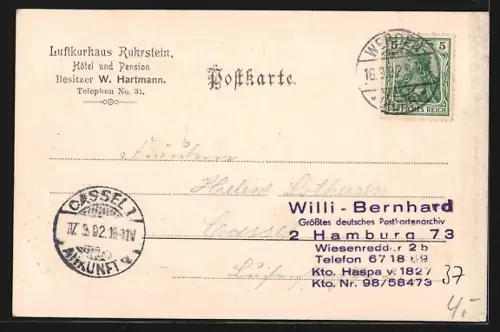 Luftkurhaus Ruhrstein,
Hôtel und Pension
Besitzer W. Hartmann.
Telephon No. 31.
Postkarte.
WERDEN
5
5
DEUTSCHES REICH
Fräulein
CASSEL 1
ANKUNFT
Willi-Bernhard
Größtes deutsches Postkartenarchiv
2 Hamburg 73
Wiesenredder 2b
Telefon 67 18 69
Kto. Haspa v. 1827
Kto. Nr. 98/58473
37
4,-